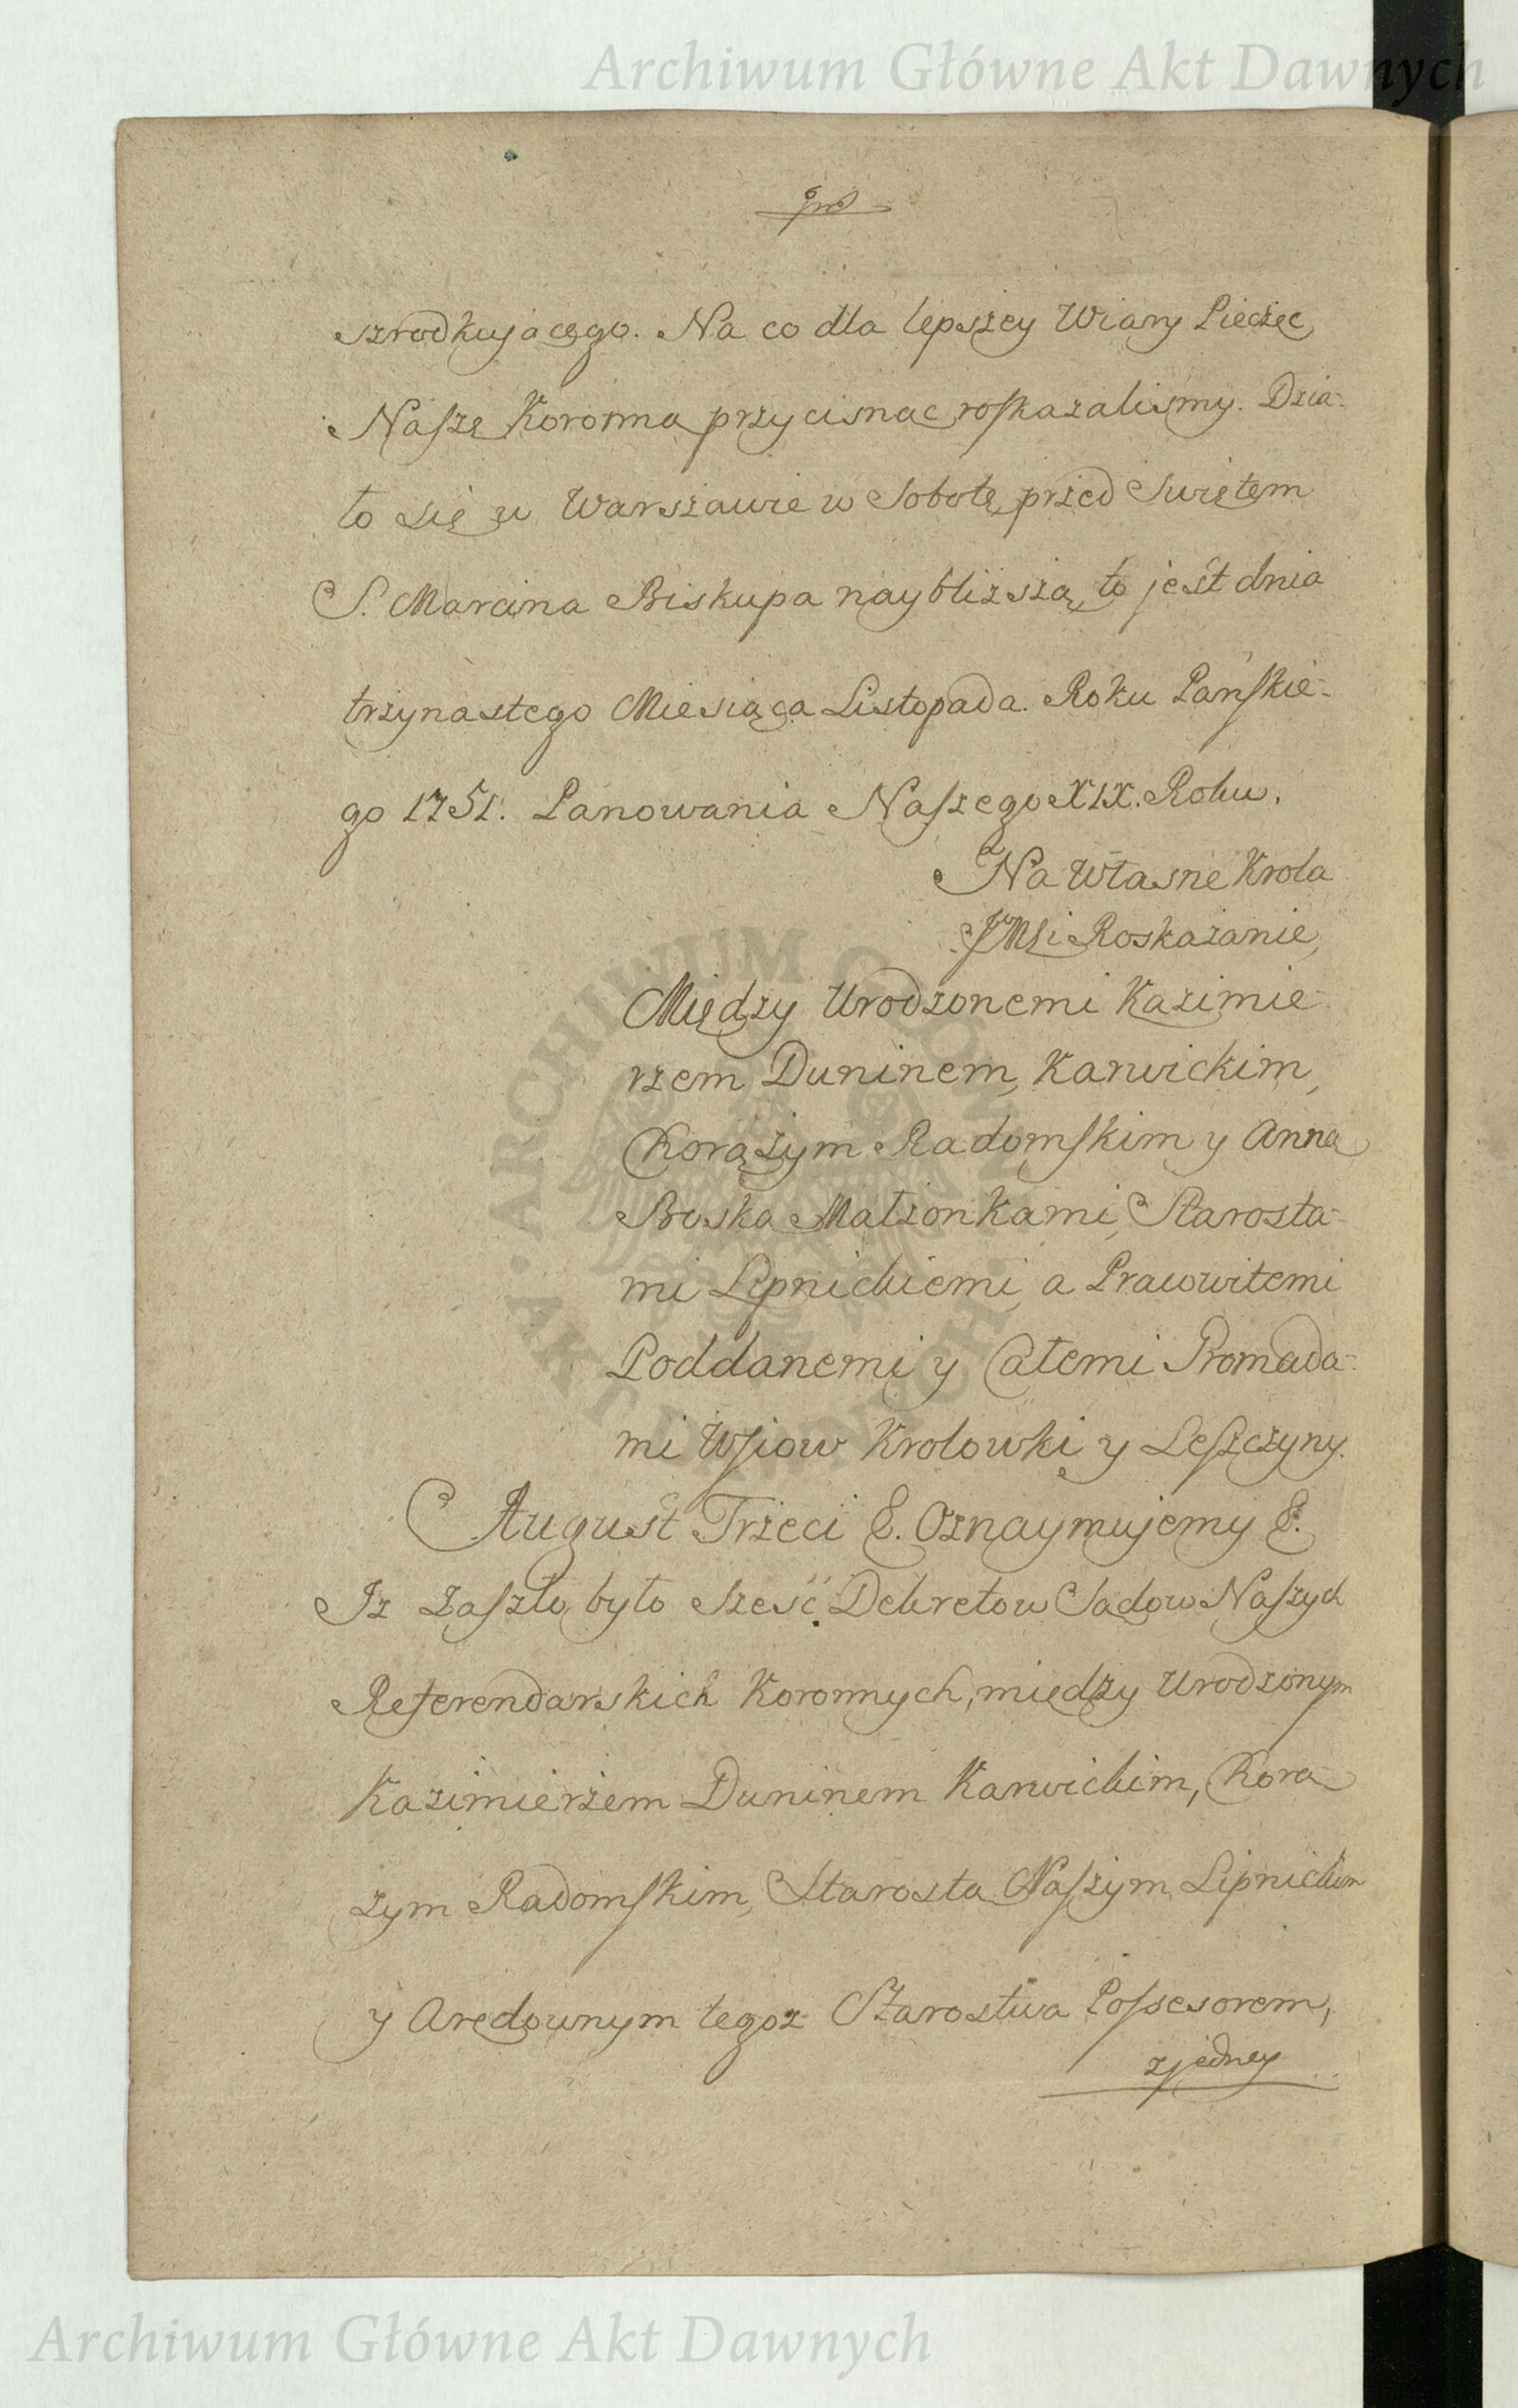 Archiwum Główne Akt Dawnych
szrodkującego. Na co dla lepszey Wiary Pieczęc
Naszę Koronną przycisnac roskazalismy. Dzia-
ło się w Warszawie w Sobotę przed Swiętem
S. Marcina Biskupa naybliższą, to jest dnia
trzynastego Miesiąca Listopada. Roku Pańskie-
go 1751. Panowania Naszego XIX. Roku.
Na Własne Krola
JMsi Roskazanie,
Między Urodzonemi Kazimie-
rzem Duninem, Karwickim,
Chorążym Radomskim y Anną
Małzonkami, Starosta-
mi Lipnickiemi, a Pracowitemi
Poddanemi y Całemi Gromada-
mi Wsiow Krolowki y Leszczyny.
August Trzeci &. Oznaymujemy &.
Iz Zaszło było sześć Dekretow Sądow Naszych
Referendarskich Koronnych, między Urodzonym
Kazimierzem Duninem Karwickim, Chorą
zym Radomskim, Starostą Naszym Lipnickim
y Aredownym tegoz Starostwa Possesorem,
z jedney
ARCHIWUM GŁÓWNE AKT DAWNYCH
Archiwum Główne Akt Dawnych